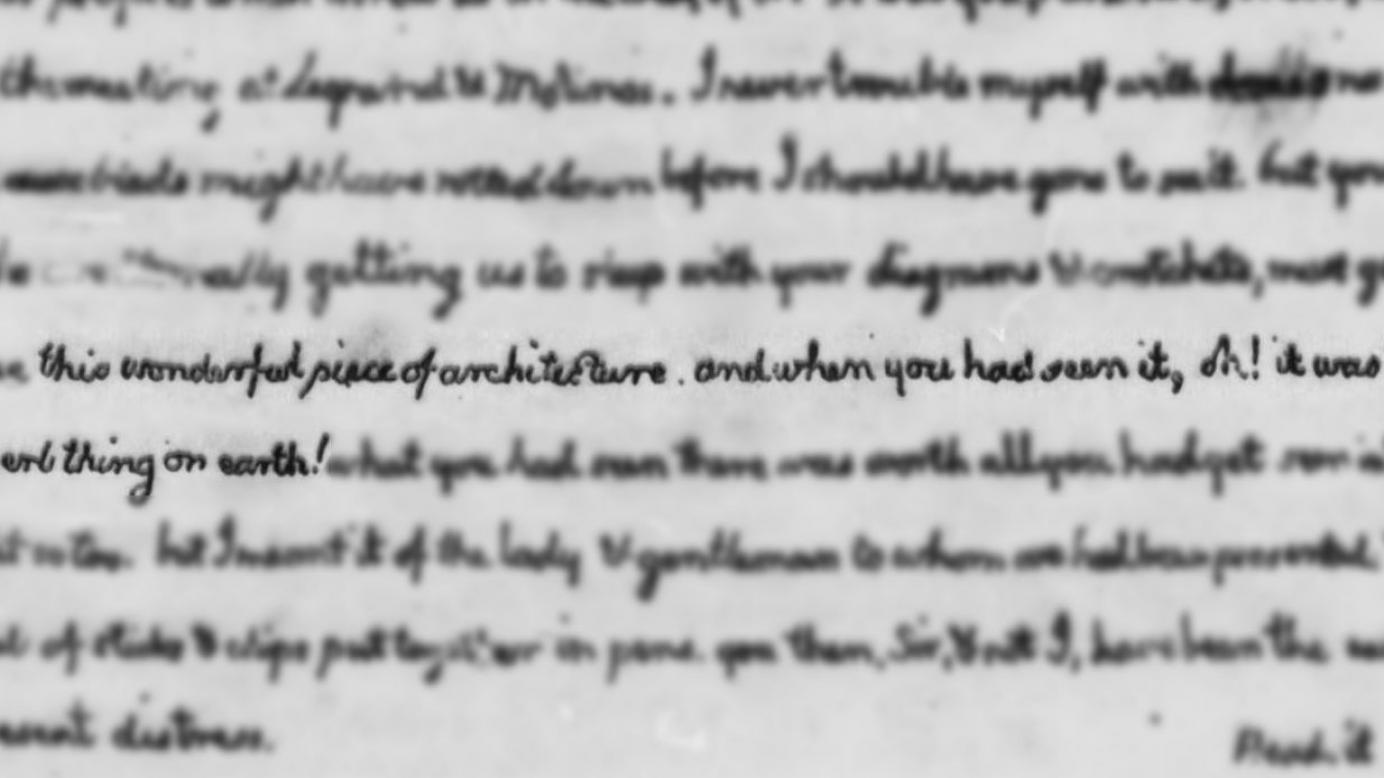 the meeting at Legrand & Molinos. I never trouble myself with
might have rotted down before I should have gone to see it. but you
getting us to sleep with your diagrams & crotchets, must
this wonderful piece of architecture. and when you had seen it, oh! it was
erb thing on earth! what you had seen there was worth all you had yet seen
but I meant it of the lady & gentleman to whom we had been presented,
of sticks & chips put together in pens. you then, Sir, & not I, have been the
distress.
Head. it